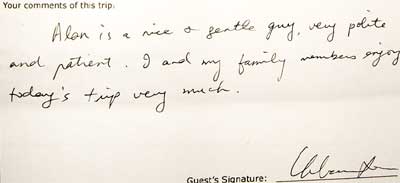 Your comments of this trip:
Alan is a nice & gentle guy, very polite
and patient. I and my family members enjoy
today's trip very much.
Guest's Signature: